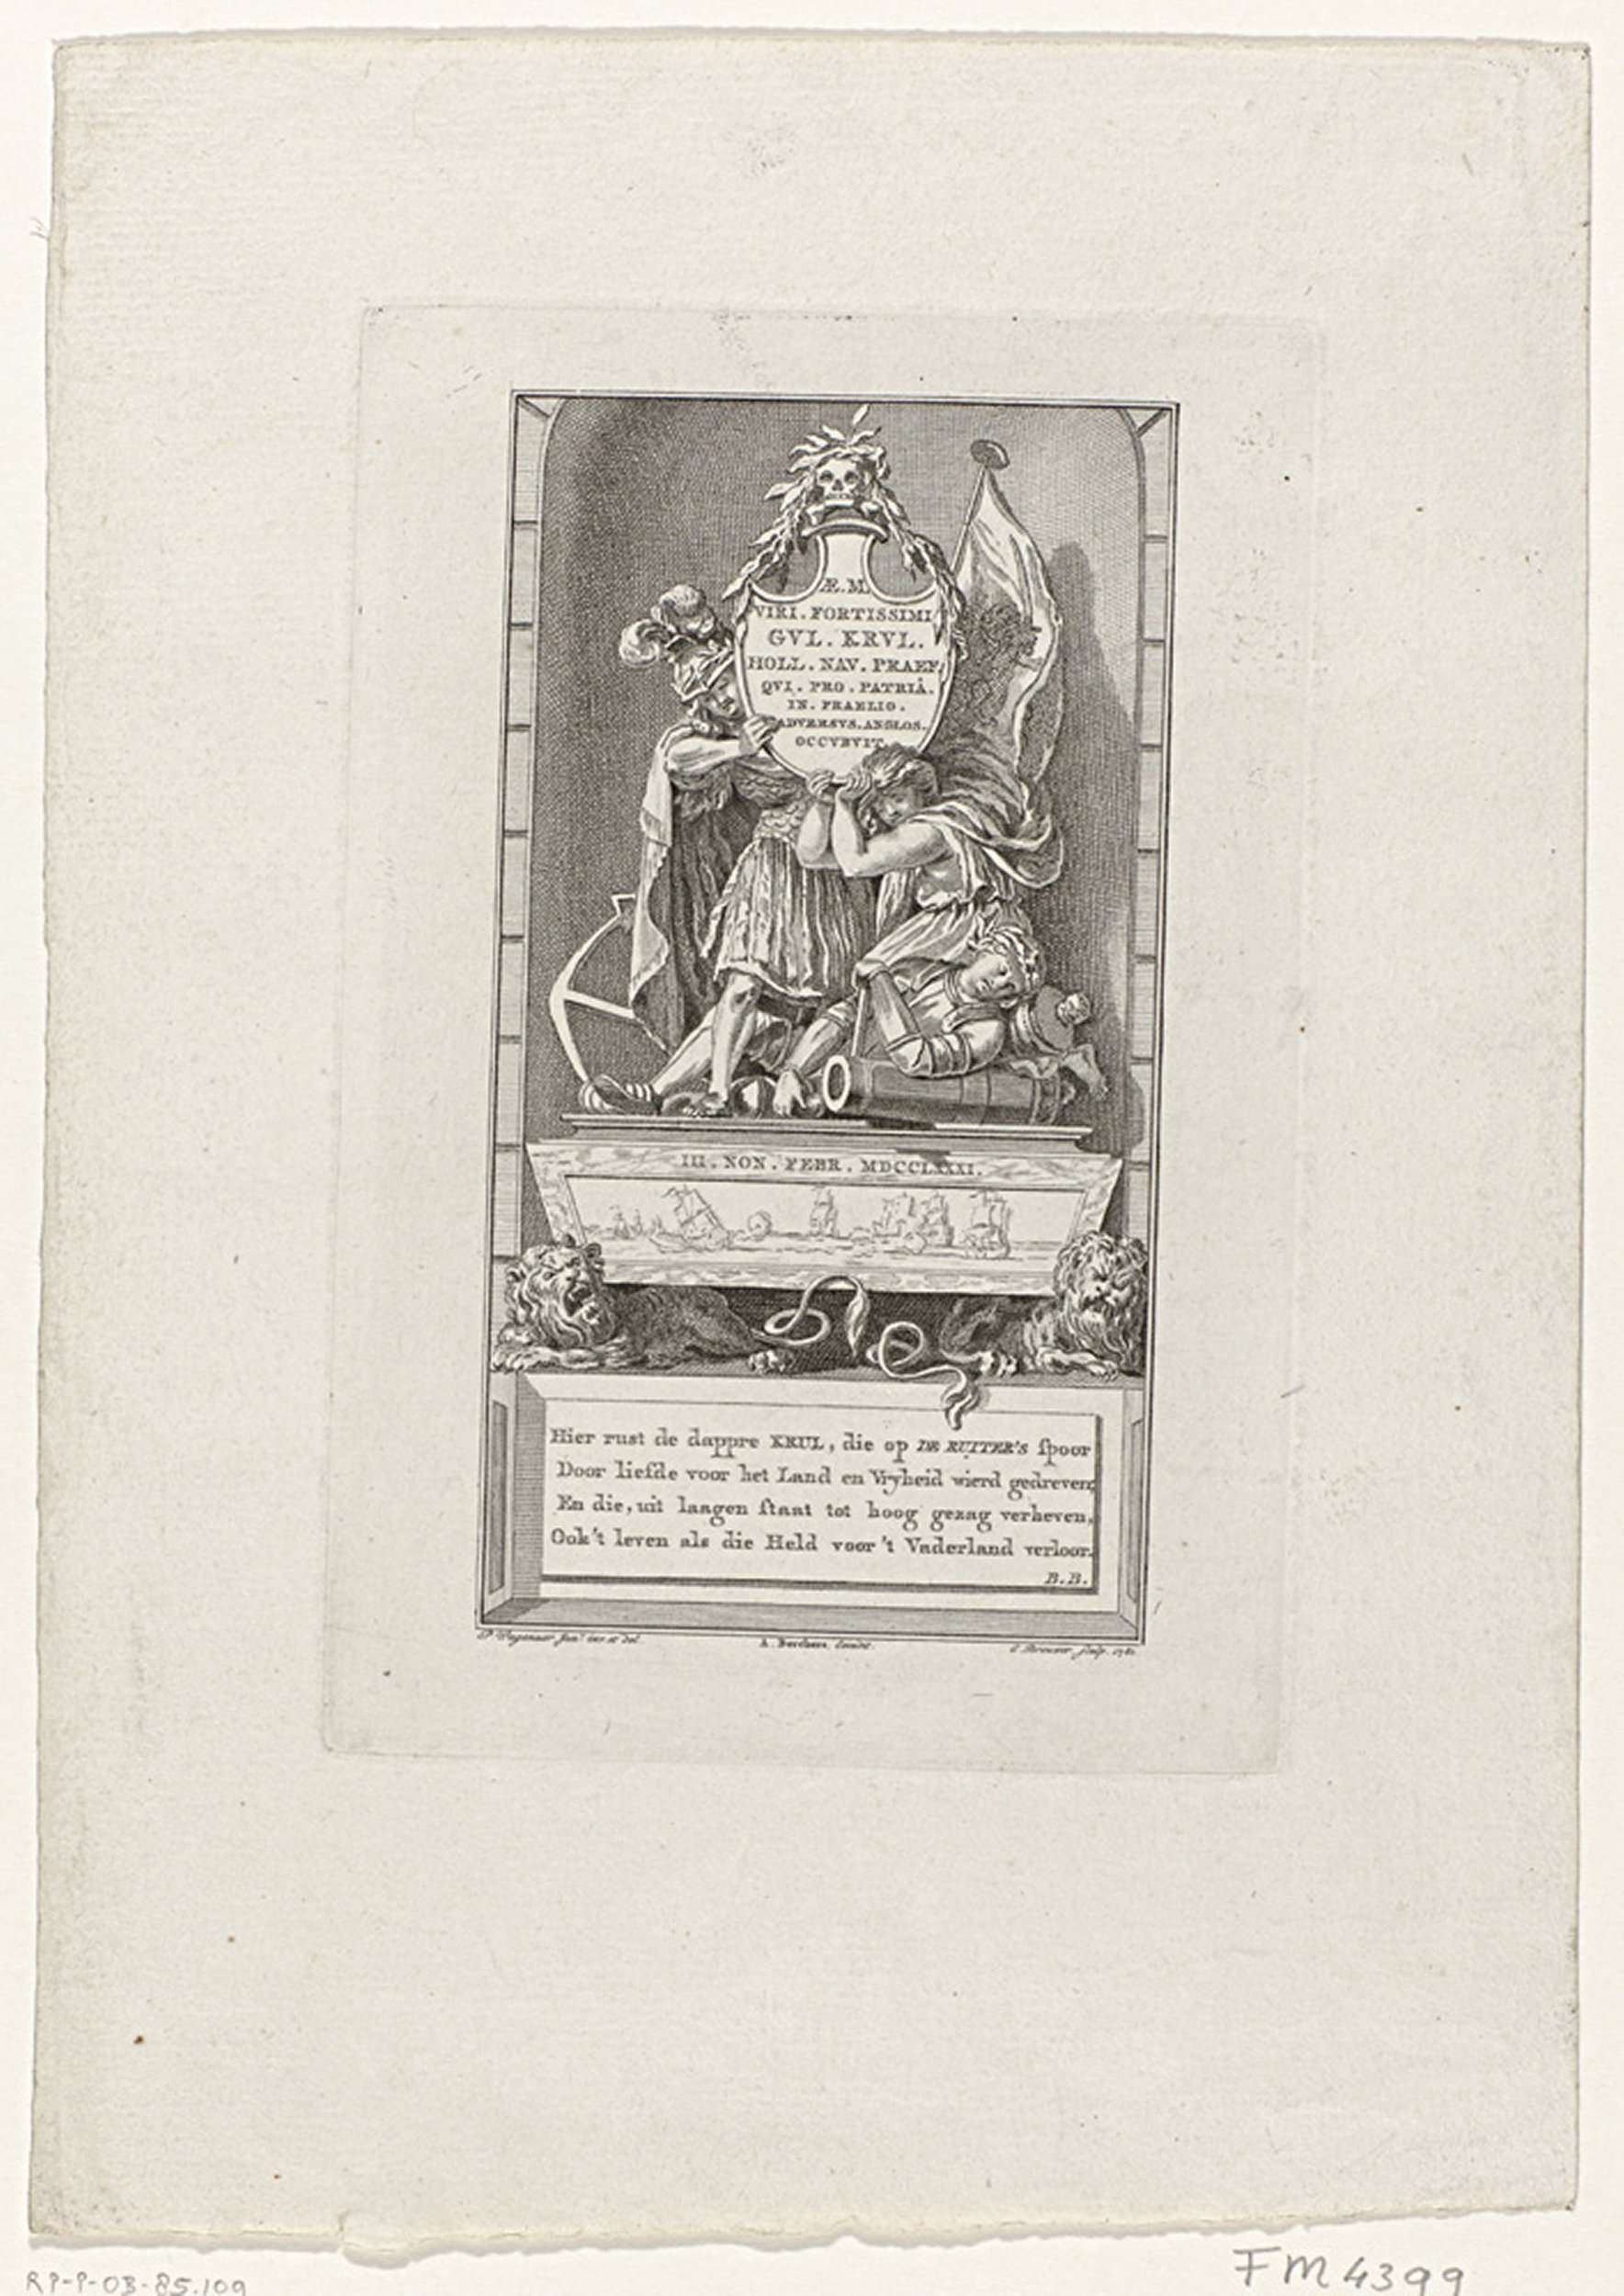 Æ.M.
VIRI.FORTISSIMI
GVL.KRVL.
HOLL.NAV.PRAEF.
QVI.PRO.PATRIÂ.
IN.PRAELIO.
ADVERSVS.ANGLOS.
OCCVBVIT.
III.NON.FEBR.MDCCLXXXI.
Hier rust de dappre KRUL, die op DE RUITER'S spoor
Door liefde voor het Land en Vryheid wierd gedreven;
En die, uit laagen staat tot hoog gezag verheven,
Ook 't leven als die Held voor 't Vaderland verloor.
B.B.
P. Wagenaar Junr. inv. et del.
A. excudit.
C. Brouwer, sculp. 1781
RP-P-OB-85.109
FM 4399